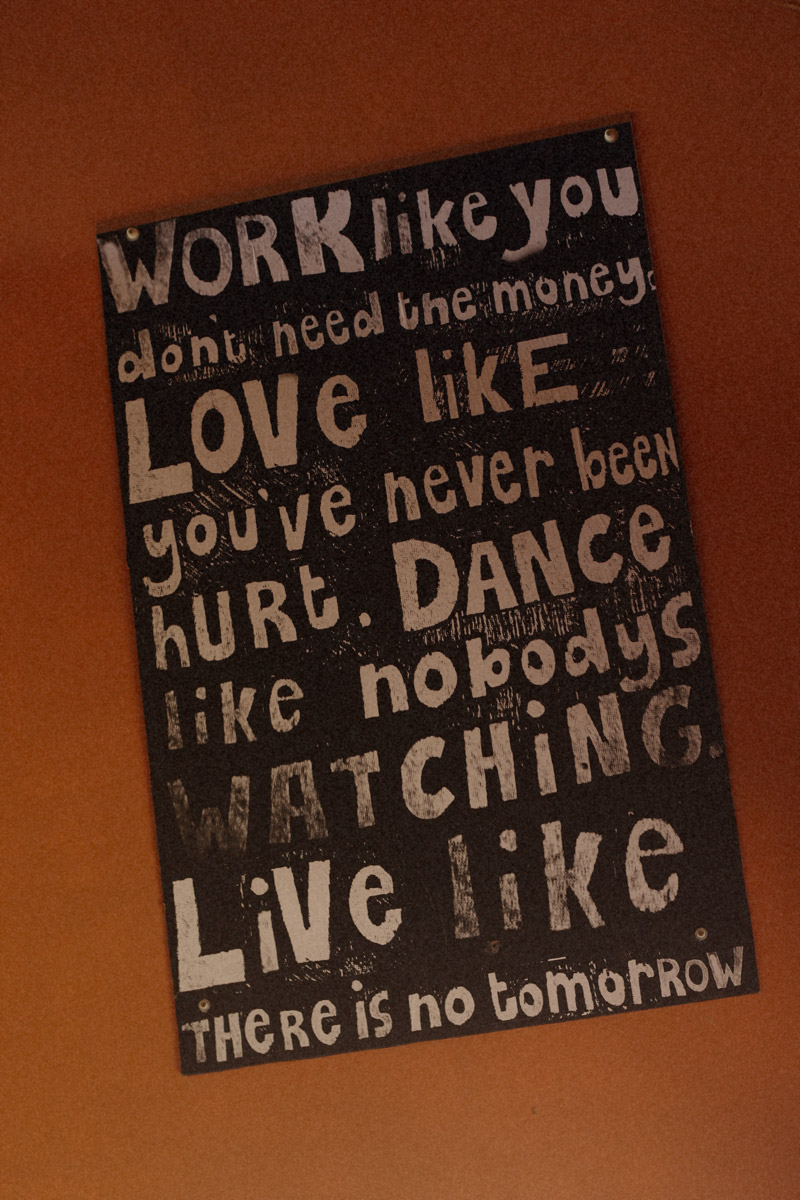 WORK like you
don't need the money.
LOVE likE
you've never been
hURt. DANCe
like nobodys
WATCHiNG.
LiVe like
THeRe iS no tomorRoW